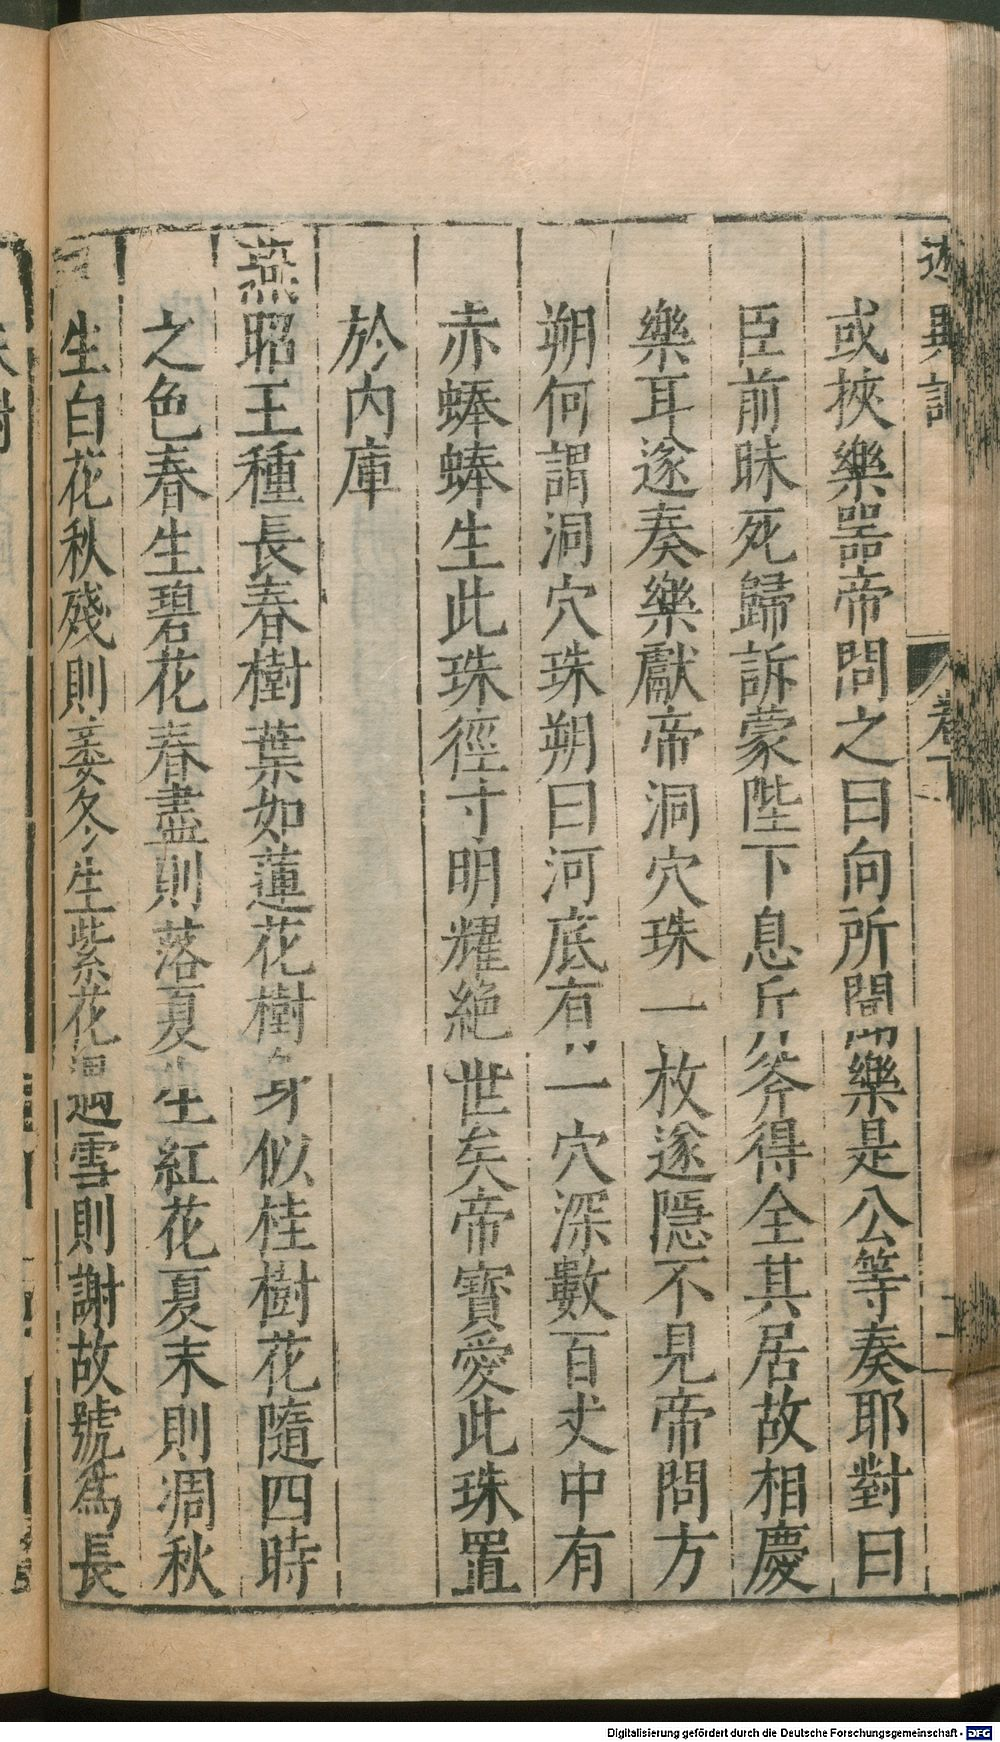 述異記
卷下
或挾樂器帝問之曰向所聞樂是公等奏耶對曰
臣前昧死歸訴蒙陛下息斤斧得全其居故相慶
樂耳遂奏樂獻帝洞穴珠一枚遂隱不見帝問方
朔何謂洞穴珠朔曰河底有一穴深數百丈中有
赤蜯蜯生此珠徑寸明耀絕世矣帝寳愛此珠置
於內庫
燕昭王種長春樹葉如蓮花樹身似桂樹花隨四時
之色春生碧花春盡則落夏生紅花夏末則凋秋
生白花秋殘則萎冬生紫花遇雪則謝故號爲長
Digitalisierung gefördert durch die Deutsche Forschungsgemeinschaft - DFG